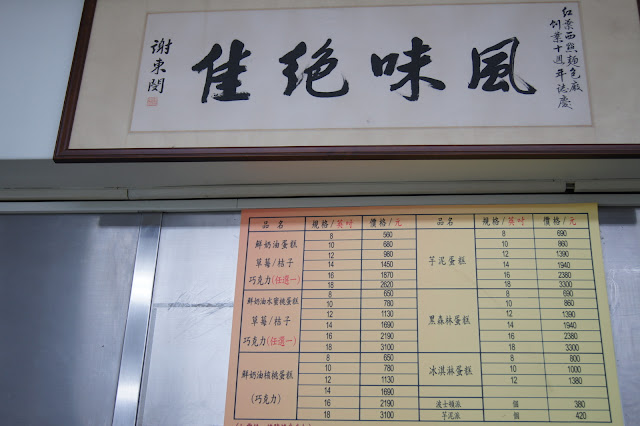 紅葉西點麵包廠
創業十週年誌慶
風味絶佳
謝東閔
品名 規格/英吋 價格/元 品名 規格/英吋 價格/元
鮮奶油蛋糕
草莓/桔子
巧克力(任選一)
8 560
10 680
12 980
14 1450
16 1870
18 2620
鮮奶油水蜜桃蛋糕
草莓/桔子
巧克力(任選一)
8 650
10 780
12 1130
14 1690
16 2190
18 3100
鮮奶油核桃蛋糕
(巧克力)
8 650
10 780
12 1130
14 1690
16 2190
18 3100
芋泥蛋糕
8 690
10 860
12 1390
14 1940
16 2380
18 3300
黑森林蛋糕
8 690
10 860
12 1390
14 1940
16 2380
18 3300
冰淇淋蛋糕
8 800
10 1000
12 1380
波士頓派 個 380
芋泥派 個 420